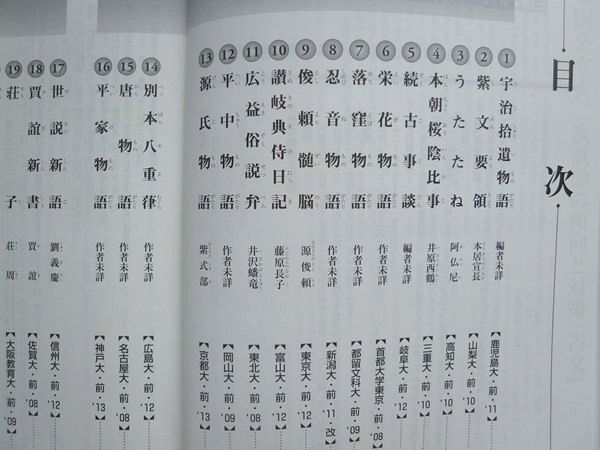 目次
1 宇治拾遺物語 編者未詳 【鹿児島大・前・'11】
2 紫文要領 本居宣長 【山梨大・前・'10】
3 うたたね 阿仏尼 【高知大・前・'10】
4 本朝桜陰比事 井原西鶴 【三重大・前・'10】
5 続古事談 編者未詳 【岐阜大・前・'12】
6 栄花物語 作者未詳 【首都大学東京・前・'08】
7 落窪物語 作者未詳 【都留文科大・前・'09】
8 忍音物語 作者未詳 【新潟大・前・'11・改】
9 俊頼髄脳 源俊頼 【東京大・前・'11】
10 讃岐典侍日記 藤原長子 【富山大・前・'12】
11 広益俗説弁 井沢蟠竜 【東北大・前・'08】
12 平中物語 作者未詳 【岡山大・前・'09】
13 源氏物語 紫式部 【京都大・前・'13】
14 別本八重葎 作者未詳 【広島大・前・'12】
15 唐物語 作者未詳 【名古屋大・前・'08】
16 平家物語 作者未詳 【神戸大・前・'13】
17 世説新語 劉義慶 【信州大・前・'12】
18 賈誼新書 賈誼 【佐賀大・前・'08】
19 荘子 荘周 【大阪教育大・前・'09】